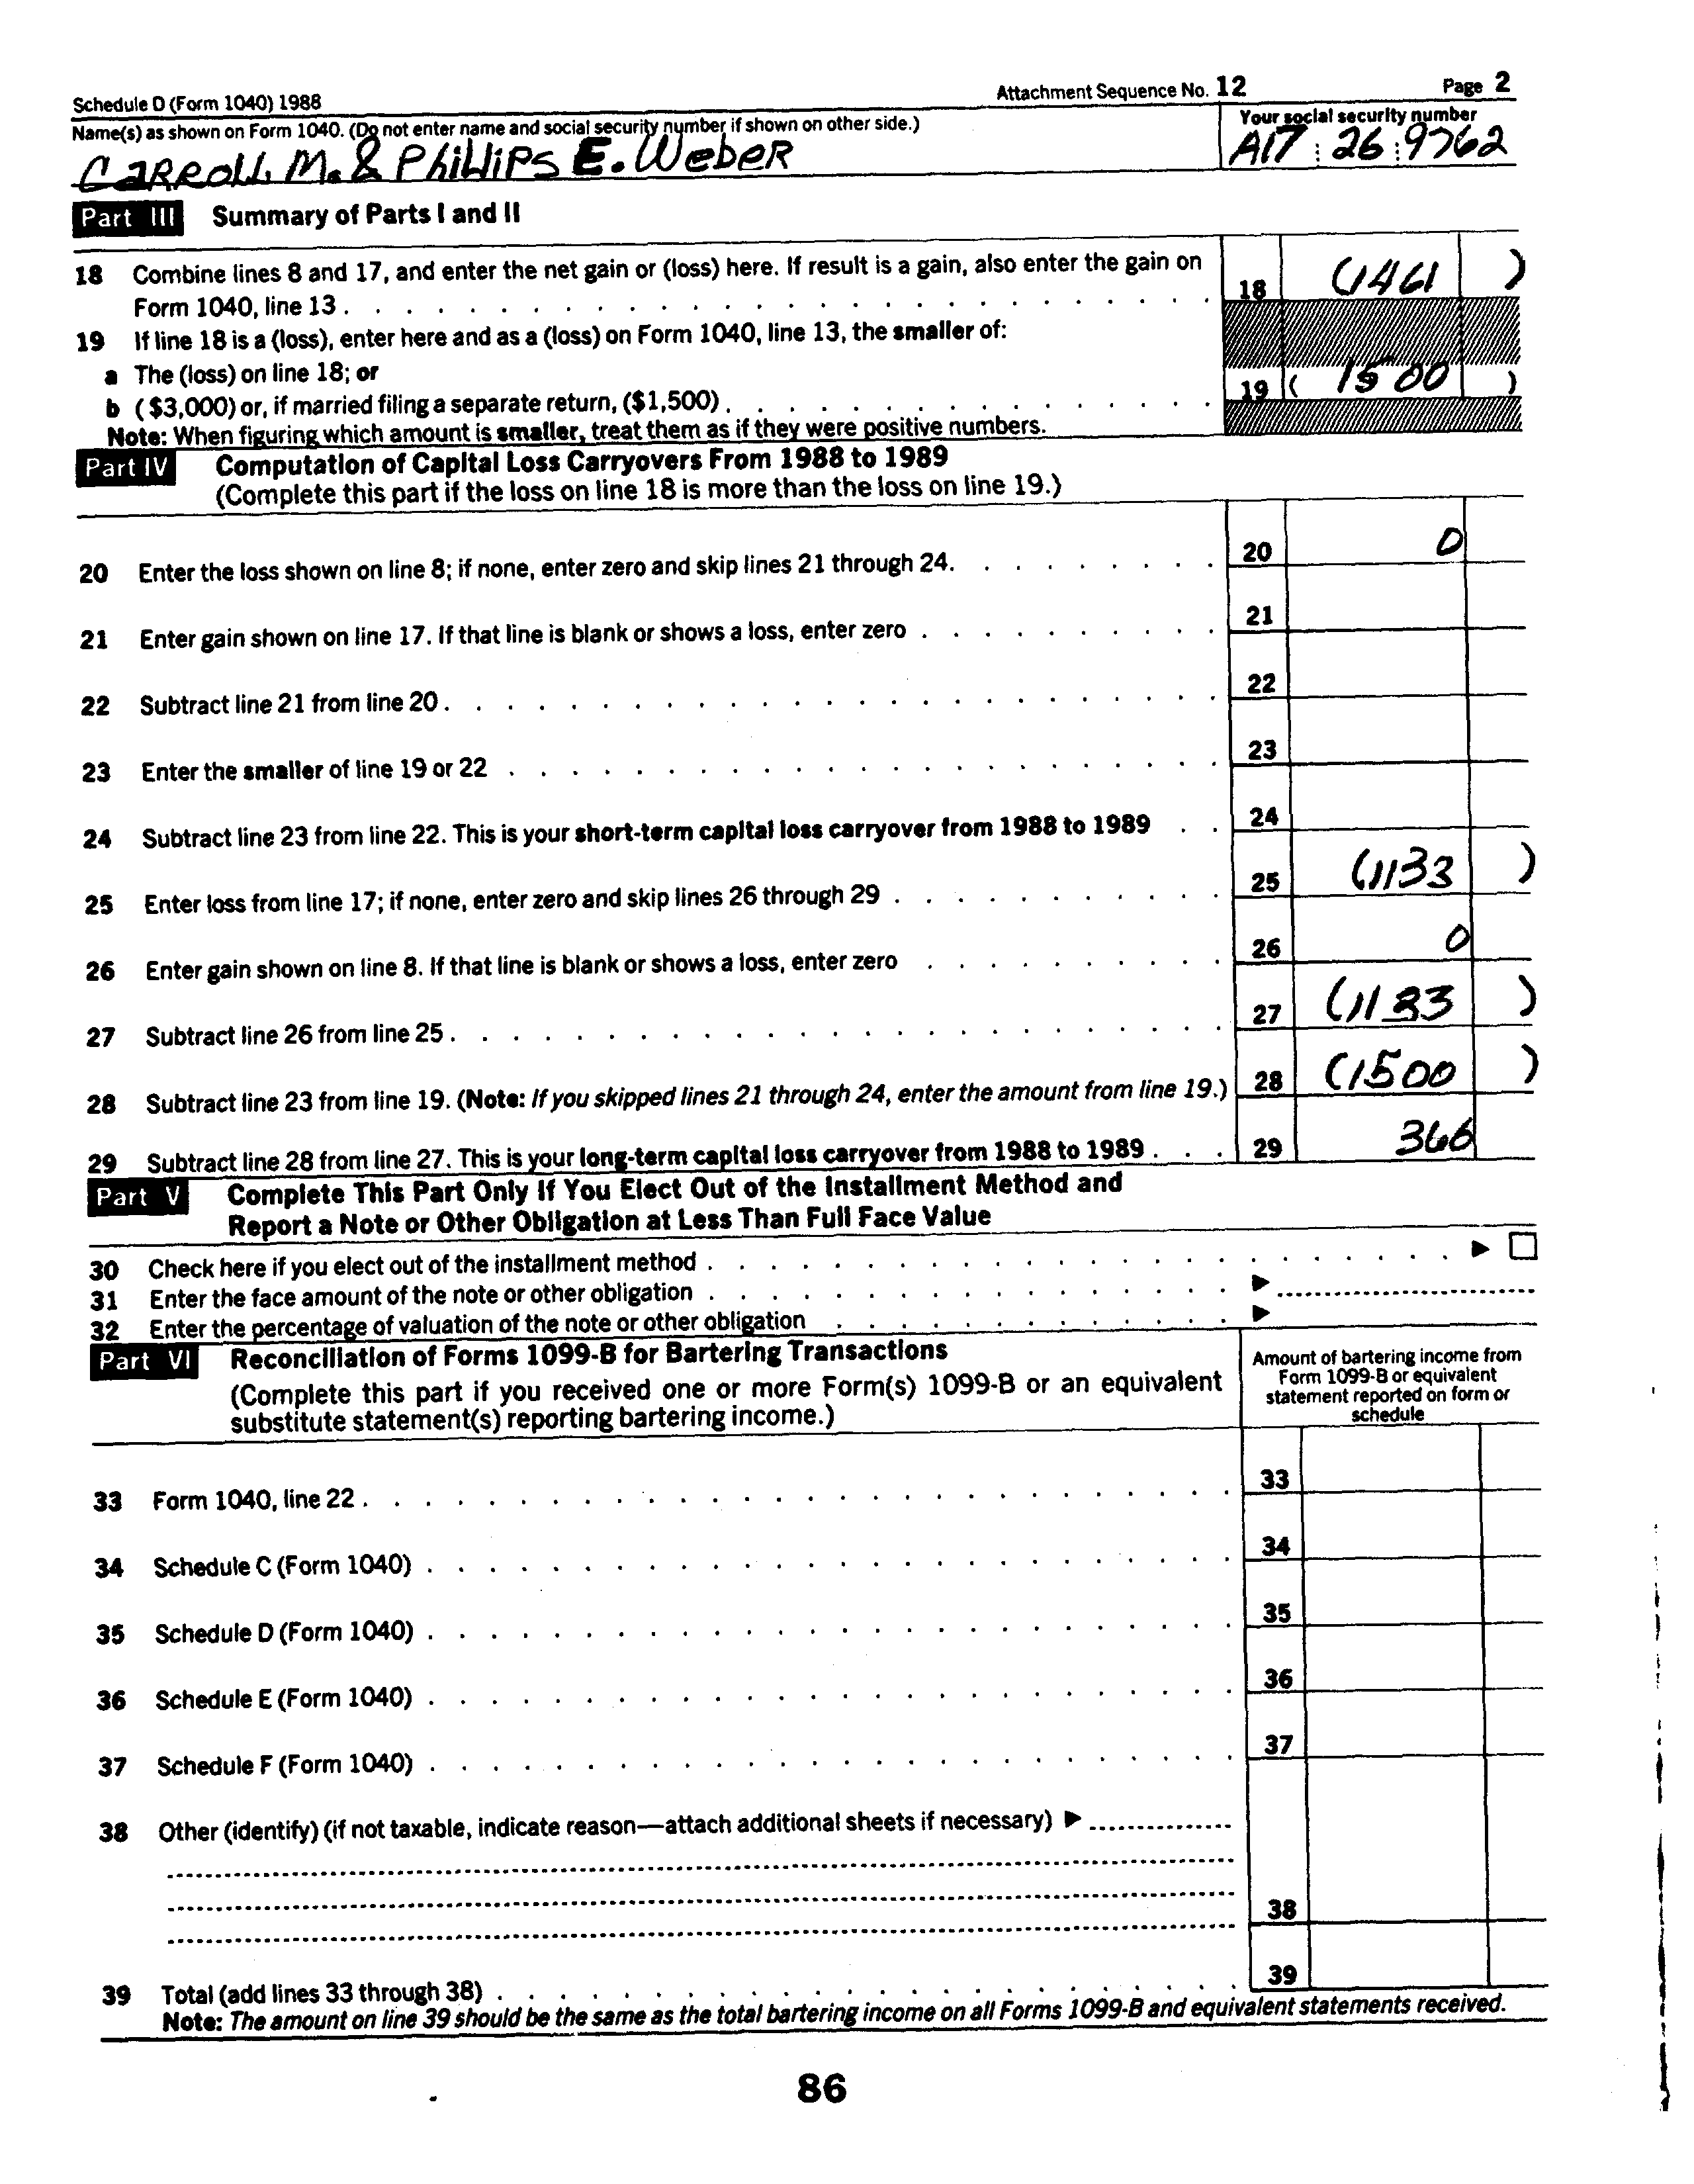 Schedule D (Form 1040) 1988 Attachment Sequence No. 12 Page 2
Name(s) as shown on Form 1040. (Do not enter name and social security number if shown on other side.) Your social security number
CARROLL M. & PhilliPS E. WebeR A17 26 9762
Part III Summary of Parts I and II
18 Combine lines 8 and 17, and enter the net gain or (loss) here. If result is a gain, also enter the gain on
Form 1040, line 13 . . . 18 (1461 )
19 If line 18 is a (loss), enter here and as a (loss) on Form 1040, line 13, the smaller of:
a The (loss) on line 18; or
b ($3,000) or, if married filing a separate return, ($1,500) . . . 19 ( 1500 )
Note: When figuring which amount is smaller, treat them as if they were positive numbers.
Part IV Computation of Capital Loss Carryovers From 1988 to 1989
(Complete this part if the loss on line 18 is more than the loss on line 19.)
20 Enter the loss shown on line 8; if none, enter zero and skip lines 21 through 24. . . . 20 0
21 Enter gain shown on line 17. If that line is blank or shows a loss, enter zero . . . 21
22 Subtract line 21 from line 20 . . . 22
23 Enter the smaller of line 19 or 22 . . . 23
24 Subtract line 23 from line 22. This is your short-term capital loss carryover from 1988 to 1989 . . 24
25 Enter loss from line 17; if none, enter zero and skip lines 26 through 29 . . . 25 (1133 )
26 Enter gain shown on line 8. If that line is blank or shows a loss, enter zero . . . 26 0
27 Subtract line 26 from line 25 . . . 27 (1133 )
28 Subtract line 23 from line 19. (Note: If you skipped lines 21 through 24, enter the amount from line 19.) 28 (1500 )
29 Subtract line 28 from line 27. This is your long-term capital loss carryover from 1988 to 1989 . . . 29 366
Part V Complete This Part Only If You Elect Out of the Installment Method and
Report a Note or Other Obligation at Less Than Full Face Value
30 Check here if you elect out of the installment method . . . ▶ ☐
31 Enter the face amount of the note or other obligation . . . ▶
32 Enter the percentage of valuation of the note or other obligation . . . ▶
Part VI Reconciliation of Forms 1099-B for Bartering Transactions
(Complete this part if you received one or more Form(s) 1099-B or an equivalent
substitute statement(s) reporting bartering income.)
Amount of bartering income from
Form 1099-B or equivalent
statement reported on form or
schedule
33 Form 1040, line 22 . . . 33
34 Schedule C (Form 1040) . . . 34
35 Schedule D (Form 1040) . . . 35
36 Schedule E (Form 1040) . . . 36
37 Schedule F (Form 1040) . . . 37
38 Other (identify) (if not taxable, indicate reason—attach additional sheets if necessary) ▶
38
39 Total (add lines 33 through 38) . . . 39
Note: The amount on line 39 should be the same as the total bartering income on all Forms 1099-B and equivalent statements received.
86